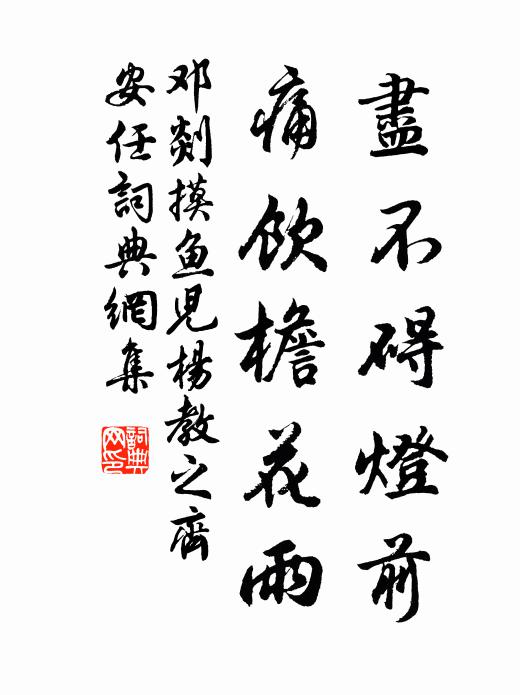 盡不碍燈前
痛飲檐花雨
邓剡摸鱼児楊教之齊
安任詞典網集
詞典
网印